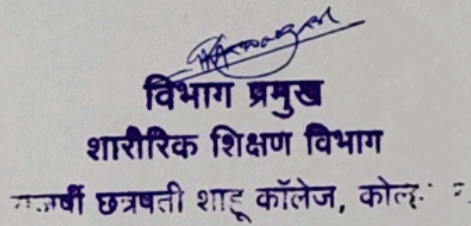 विभाग प्रमुख
शारीरिक शिक्षण विभाग
छत्रपती शाहू कॉलेज,